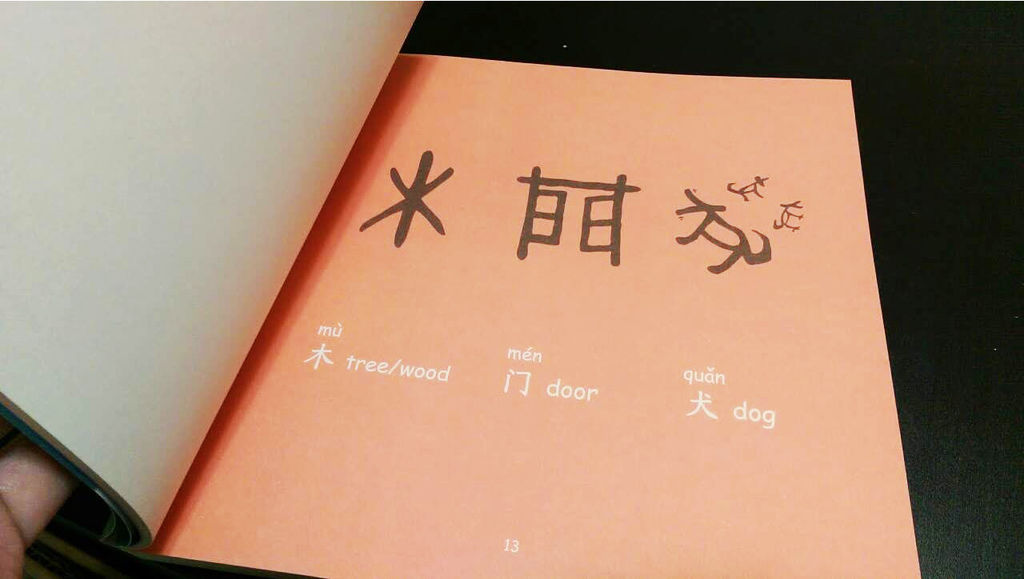 mù
木 tree/wood
mén
门 door
quǎn
犬 dog
13